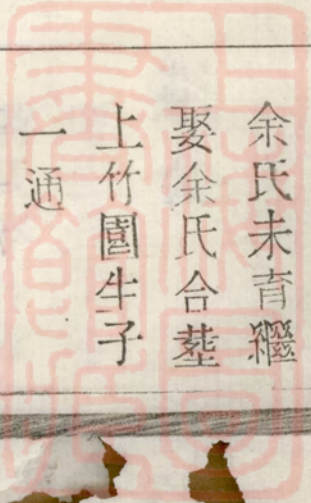 余氏未育繼
娶余氏合塟
上竹園生子
一通